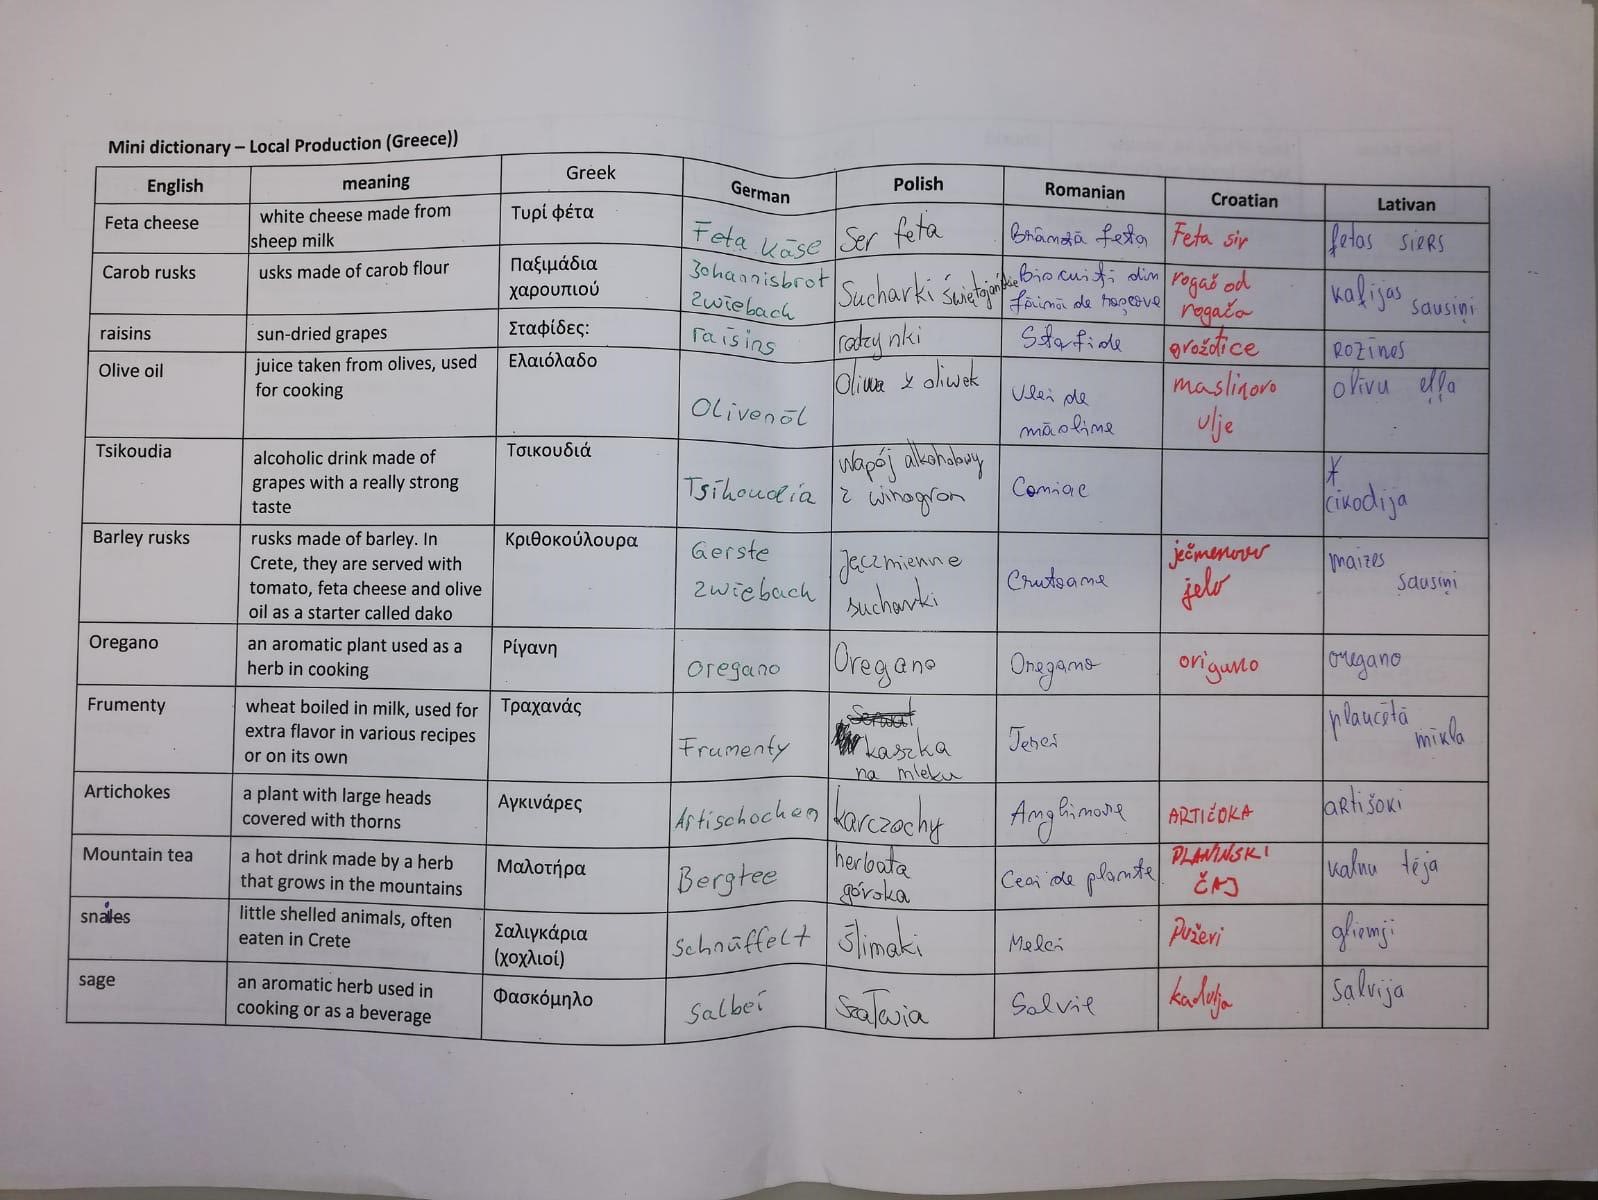 Mini dictionary – Local Production (Greece))
English meaning Greek German Polish Romanian Croatian Lativan
Feta cheese
white cheese made from
sheep milk
Τυρί φέτα
Feta Käse
Ser feta
Brânză feta
Feta sir
fetas siers
Carob rusks
usks made of carob flour
Παξιμάδια
χαρουπιού
Johannisbrot
zwiebach
Sucharki świętojańskie
Biscuiți din
făină de roșcove
rogač od
rogača
kafijas sausiņi
raisins
sun-dried grapes
Σταφίδες:
raisins
rodzynki
Stafide
grožđice
rozīnes
Olive oil
juice taken from olives, used
for cooking
Ελαιόλαδο
Olivenöl
Oliwa z oliwek
Ulei de
măsline
maslinovo
ulje
olīvu eļļa
Tsikoudia
alcoholic drink made of
grapes with a really strong
taste
Τσικουδιά
Tsikoudia
Napój alkoholowy
z winogron
Coniac
cikodija
Barley rusks
rusks made of barley. In
Crete, they are served with
tomato, feta cheese and olive
oil as a starter called dako
Κριθοκούλουρα
Gerste
zwiebach
Jęczmienne
sucharki
Crutoane
ječmenovo
jelo
maizes
sausiņi
Oregano
an aromatic plant used as a
herb in cooking
Ρίγανη
oregano
Oregano
Oregano
origano
oregano
Frumenty
wheat boiled in milk, used for
extra flavor in various recipes
or on its own
Τραχανάς
Frumenty
kaszka
na mleku
Terci
plaucētā
mīkla
Artichokes
a plant with large heads
covered with thorns
Αγκινάρες
Artischochen
karczochy
Anghinare
ARTIČOKA
artišoki
Mountain tea
a hot drink made by a herb
that grows in the mountains
Μαλοτήρα
Bergtee
herbata
górska
Ceai de plante
PLANINSKI
ČAJ
kalnu tēja
snailes
little shelled animals, often
eaten in Crete
Σαλιγκάρια
(χοχλιοί)
Schnüffelt
Ślimaki
Melci
Puževi
gliemji
sage
an aromatic herb used in
cooking or as a beverage
Φασκόμηλο
Salbei
Szałwia
Salvie
kadulja
Salvija